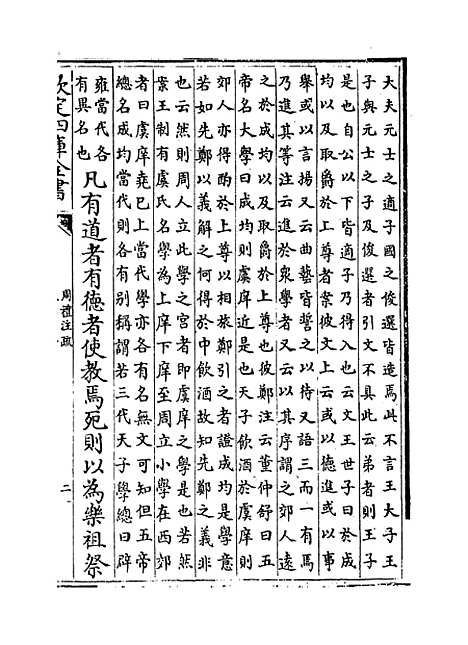 大夫元士之適子國之俊選皆造焉此不言王大子王
子與元士之子及俊選者引文不具此云弟者則王子
是也自公以下皆適子乃得入也云文王世子曰於成
均以及取爵於上尊者案彼文上云或以德進或以事
舉或以言揚又云曲藝皆誓之以待又語三而一有焉
乃進其等注云進於衆學者又云以其序謂之郊人遠
之於成均以及取爵於上尊也彼鄭注云董仲舒曰五
帝名大學曰成均則虞庠近是也天子飲酒於虞庠則
郊人亦得酌於上尊以相旅鄭引之者證成均是學意
若如先鄭以義解之何得於中飲酒故知先鄭之義非
也云然則周人立此學之宮者即虞庠之學是也若然
案王制有虞氏名學為上庠下庠至周立小學在西郊
者曰虞庠堯已上當代學亦各有名無文可知但五帝
總名成均當代則各有別稱謂若三代天子學總曰辟
雍當代各有異名也凡有道者有德者使教焉死則以為樂祖祭
欽定四庫全書
周禮注疏
二